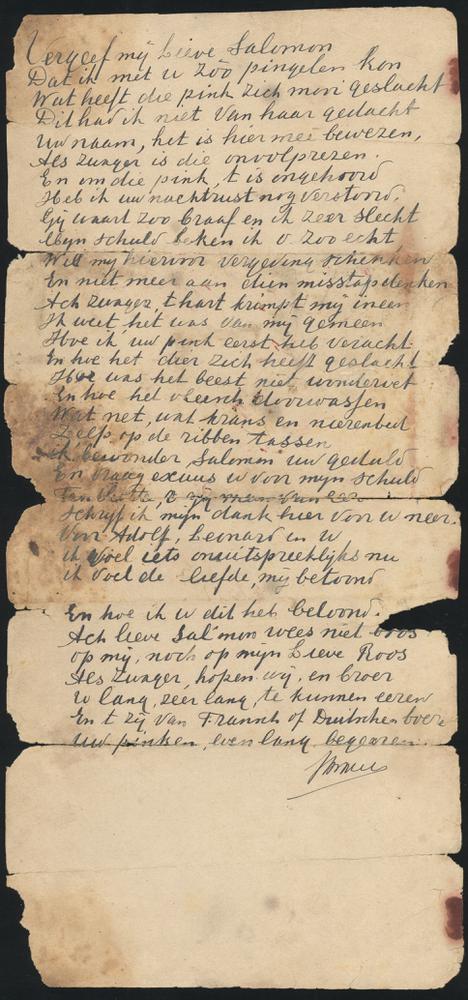 Vergeef mij Lieve Salomon
Dat ik met u zóó pingelen kon
Wat heeft die pink zich mooi geslacht
Dit had ik niet van haar gedacht
Uw naam, het is hier mee bewezen,
Als zanger is die onvolprezen.
En om die pink, t is ongehoord
Heb ik uw nachtrust nog verstoord.
Gij waart zoo braaf en ik zeer slecht
Mijn schuld beken ik U zoo echt
Wilt mij hiervoor vergeving schenken
En niet meer aan dien misstap denken
Ach zanger t hart krimpt mij ineen
Ik weet het was van mij gemeen
Hoe ik uw pink eerst heb veracht
En hoe het dier zich heeft geslacht
Hoe was het beest niet wondervet
En hoe het vleesch doorwassen
Wat net, wat krans en nierenbed
Zelfs op de ribben tassen
Ik bewonder, Salomon uw geduld
En vraag excuus u voor mijn schuld
Schrijf ik mijn dank hier voor u neer.
Voor Adolf, Leonard en u
ik voel iets onuitspreeklijks nu
ik voel de liefde, mij betoond
En hoe ik u dit heb beloond.
Ach lieve Sal'mon wees niet boos
op mij, noch op mijn Lieve Roos
Als zanger, hopen wij, en broer
U lang, zeer lang, te kunnen eeren
En t zij van Fransch of Duitschen boer
Uw pinken, even lang begeeren.